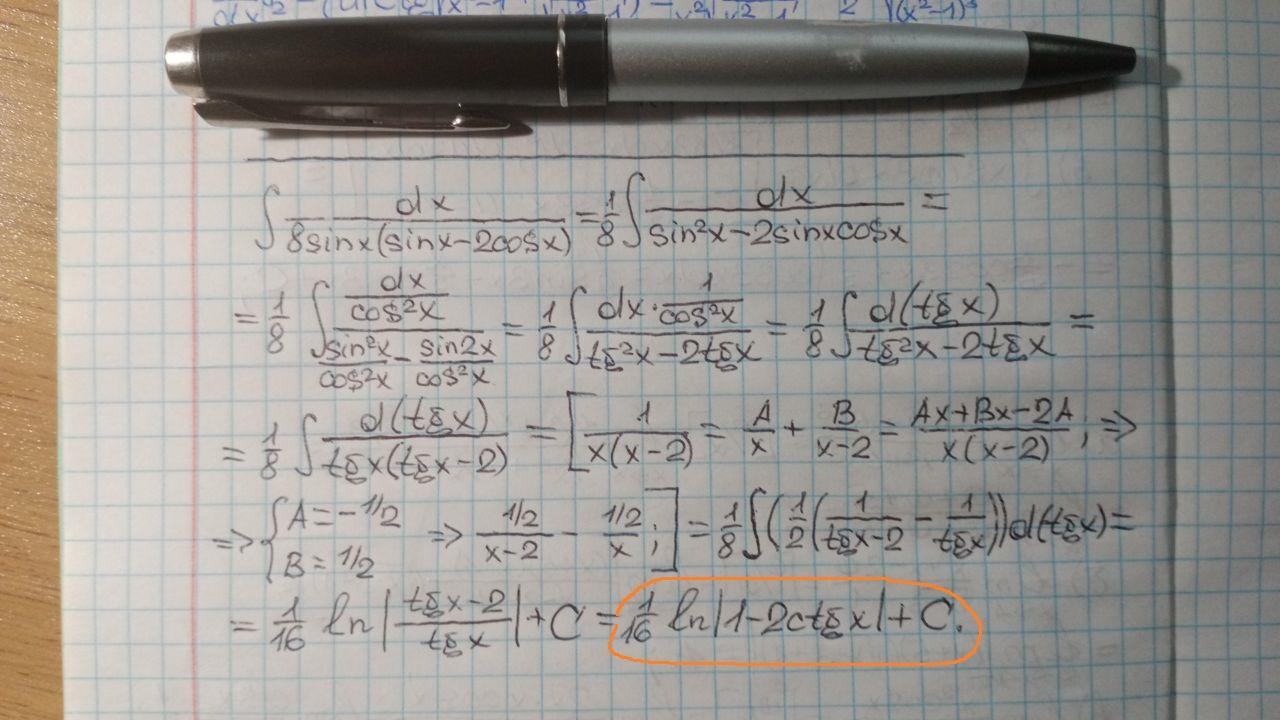 ∫ dx / (8sinx(sinx−2cosx)) = 1/8 ∫ dx / (sin²x−2sinxcosx) =
= 1/8 ∫ (dx/cos²x) / (sin²x/cos²x − sin2x/cos²x) = 1/8 ∫ (dx·1/cos²x) / (tg²x−2tgx) = 1/8 ∫ d(tgx) / (tg²x−2tgx) =
= 1/8 ∫ d(tgx) / (tgx(tgx−2)) = [1/(x(x−2)) = A/x + B/(x−2) = (Ax+Bx−2A)/(x(x−2)); ⇒
⇒ { A=−1/2 B=1/2 ⇒ (1/2)/(x−2) − (1/2)/x ;] = 1/8 ∫(1/2(1/(tgx−2) − 1/tgx))d(tgx) =
= 1/16 ln|(tgx−2)/tgx| + C = 1/16 ln|1−2ctgx| + C.